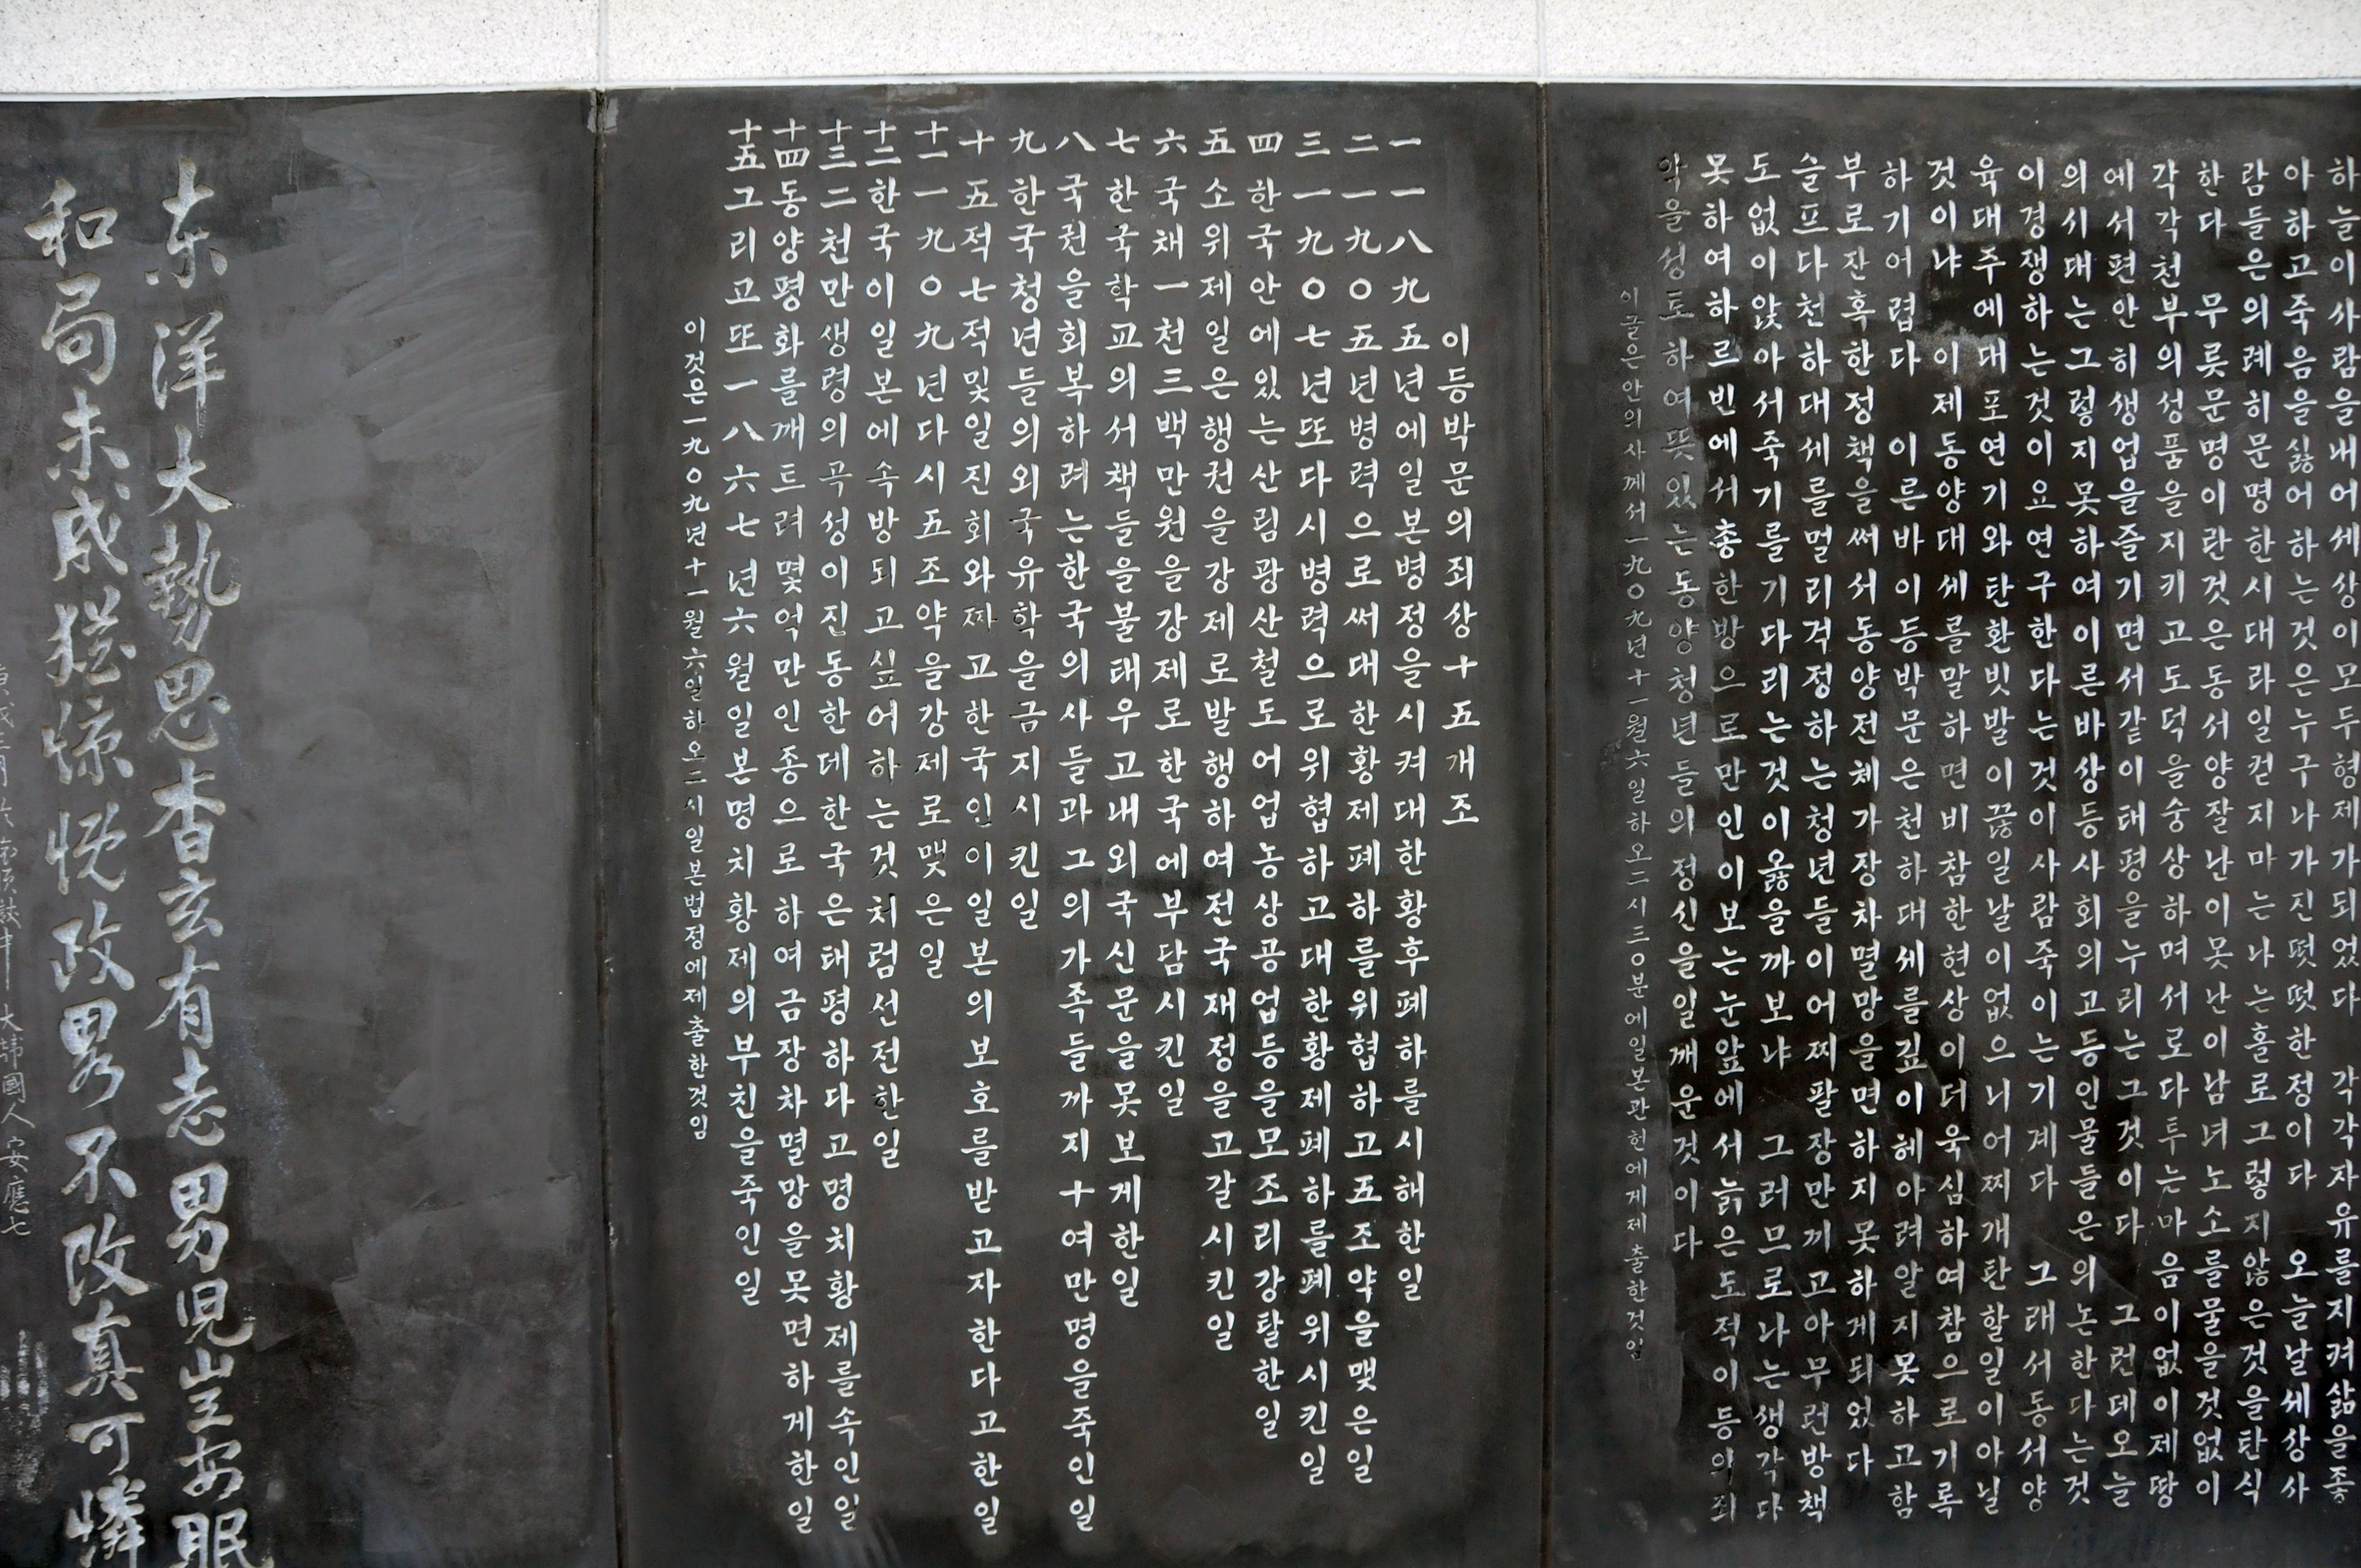 하늘이사람을내어세상이모두형제가되었다 각각자유를지켜삶을좋
아하고죽음을싫어하는것은누구나가진떳떳한정이다 오늘날세상사
람들은의례히문명한시대라일컫지마는나는홀로그렇지않은것을탄식
한다 무릇문명이란것은동서양잘난이못난이남녀노소를물을것없이
각각천부의성품을지키고도덕을숭상하며서로다투는마음이없이제땅
에서편안히생업을즐기면서같이태평을누리는그것이다 그런데오늘
의시대는그렇지못하여이른바상등사회의고등인물들은의논한다는것
이경쟁하는것이요연구한다는것이사람죽이는기계다 그래서동서양
육대주에대포연기와탄환빗발이끊일날이없으니어찌개탄할일이아닐
것이냐 이제동양대세를말하면비참한현상이더욱심하여참으로기록
하기어렵다 이른바이등박문은천하대세를깊이헤아려알지못하고함
부로잔혹한정책을써서동양전체가장차멸망을면하지못하게되었다
슬프다천하대세를멀리걱정하는청년들이어찌팔장만끼고아무런방책
도없이앉아서죽기를기다리는것이옳을까보냐 그러므로나는생각다
못하여하르빈에서총한방으로만인이보는눈앞에서늙은도적이등의죄
악을성토하여뜻있는동양청년들의정신을일깨운것이다
이글은안의사께서一九○九년十一월六일하오二시三○분에일본관헌에게제출한것임
이등박문의죄상十五개조
一一八九五년에일본병정을시켜대한황후폐하를시해한일
二一九○五년병력으로써대한황제폐하를위협하고五조약을맺은일
三一九○七년또다시병력으로위협하고대한황제폐하를폐위시킨일
四한국안에있는산림광산철도어업농상공업등을모조리강탈한일
五소위제일은행권을강제로발행하여전국재정을고갈시킨일
六국채一천三백만원을강제로한국에부담시킨일
七한국학교의서책들을불태우고내외국신문을못보게한일
八국권을회복하려는한국의사들과그의가족들까지十여만명을죽인일
九한국청년들의외국유학을금지시킨일
十五적七적및일진회와짜고한국인이일본의보호를받고자한다고한일
十一一九○九년다시五조약을강제로맺은일
十二한국이일본에속방되고싶어하는것처럼선전한일
十三二천만생령의곡성이진동한데한국은태평하다고명치황제를속인일
十四동양평화를깨트려몇억만인종으로하여금장차멸망을못면하게한일
十五그리고또一八六七년六월일본명치황제의부친을죽인일
이것은一九○九년十一월六일하오二시일본법정에제출한것임
东洋大勢思杳玄有志男児豈安眠
和局未成猶慷慨政畧不改真可憐
大韓國人安應七